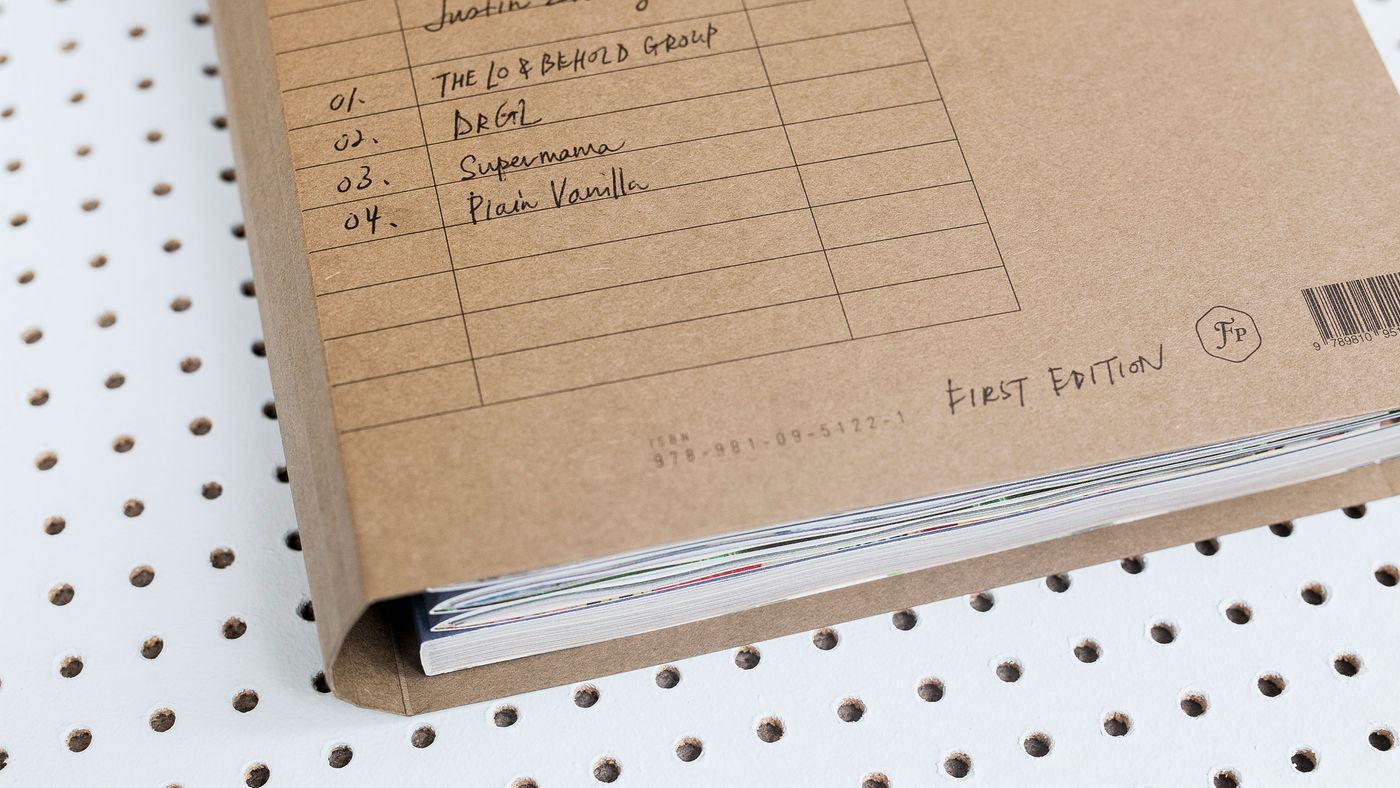 Justin
THE LO & BEHOLD GROUP
01.
DRGL
02.
Supermama
03.
Plain Vanilla
04.
FIRST EDITION
FP
9 789810 95
ISBN
978-981-09-5122-1